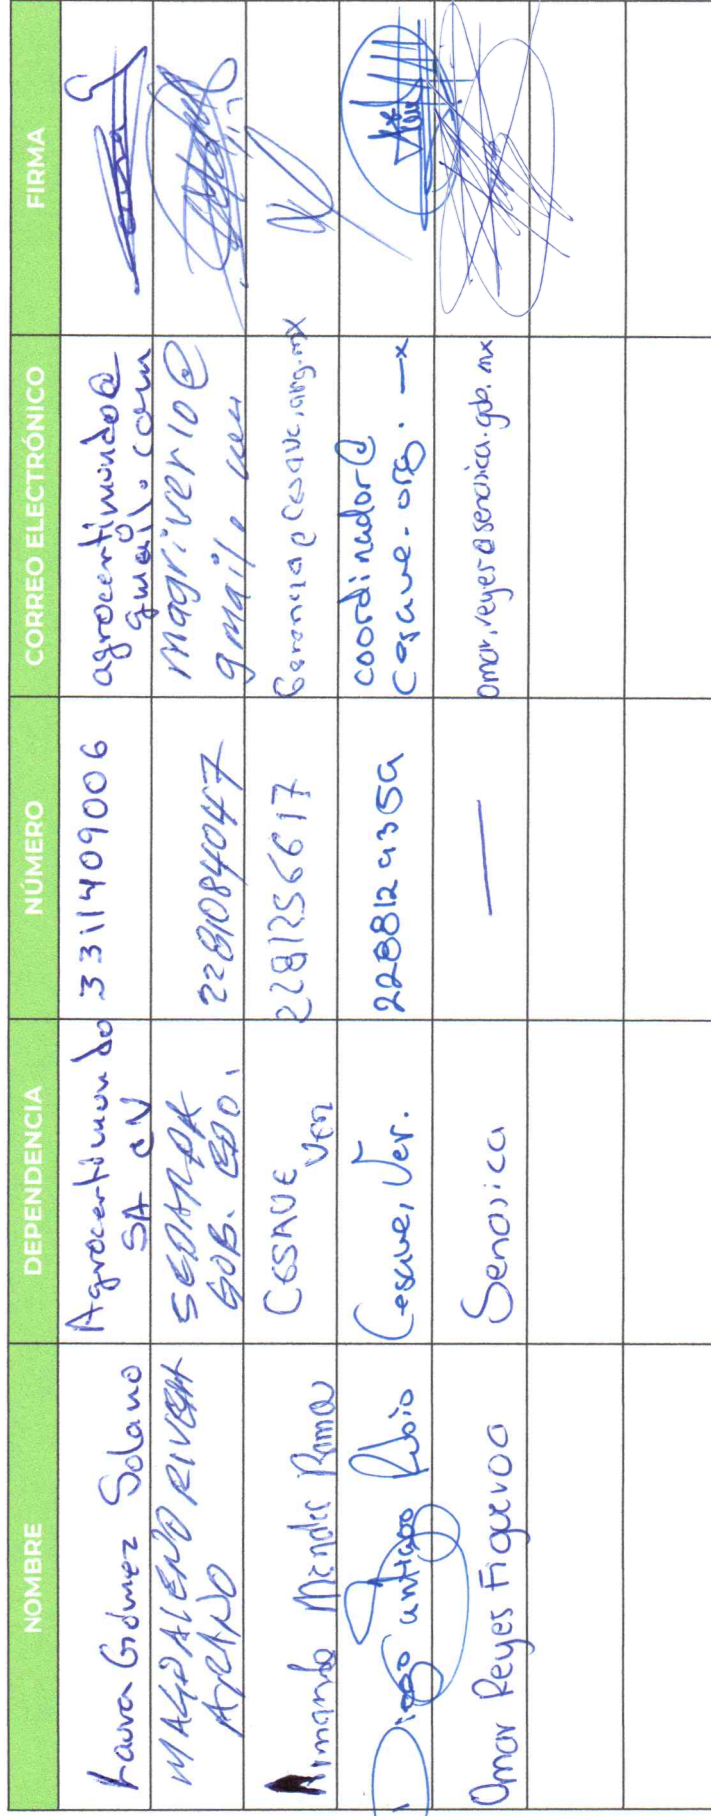 NOMBRE DEPENDENCIA NÚMERO CORREO ELECTRÓNICO FIRMA
Laura Gómez Solano Agrocertimundo SA CV 3311409006 agrocertimundo@gmail.com
MAGDALENO RIVERA SEDARPA GOB. EDO. 2281084047 magriver10@
Armando Méndez CESAVE Ver 2281256617 Gerencia@cesave.org.mx
Diego Santiago Rubio Cesave, Ver. 2288129359 coordinador@cesave.org.mx
Omar Reyes Figueroa Senasica — omar.reyes@senasica.gob.mx